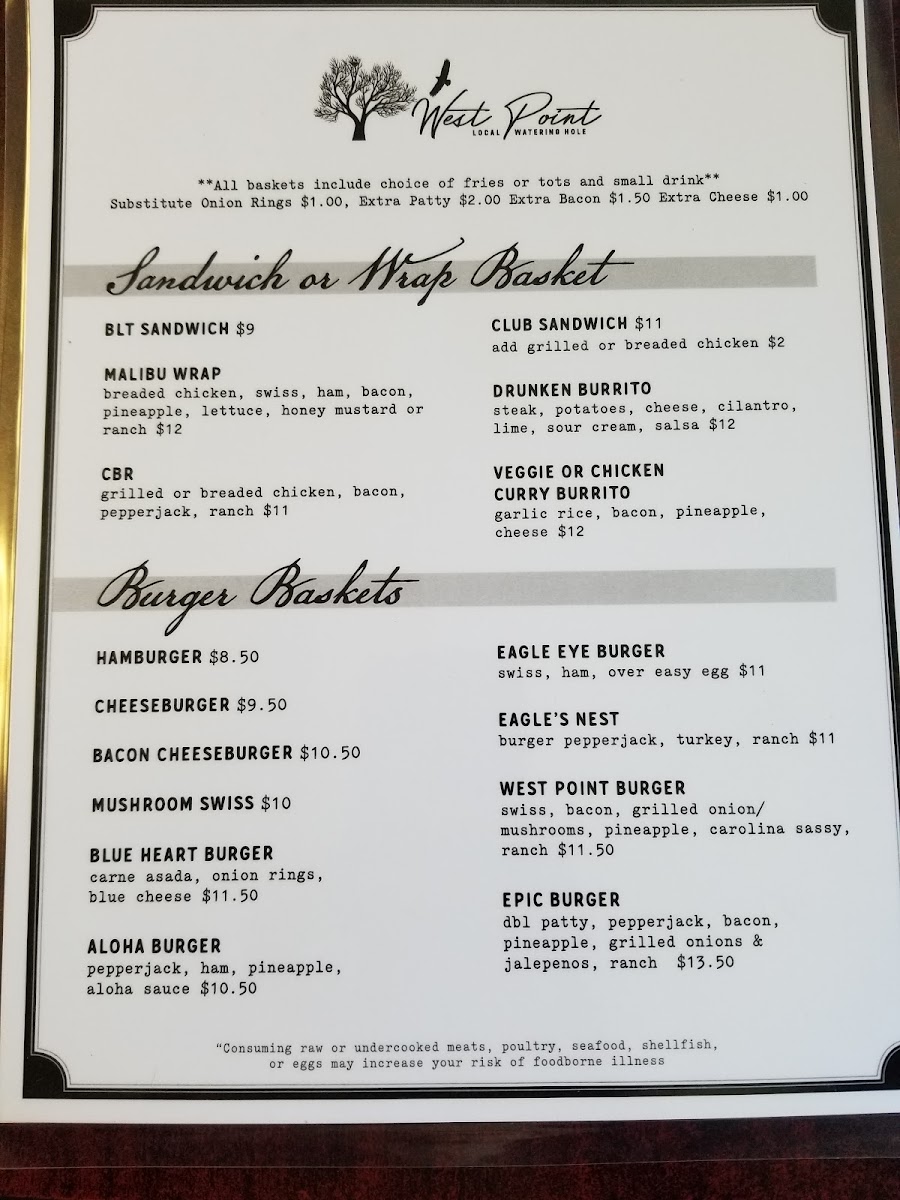 West Point
LOCAL WATERING HOLE
**All baskets include choice of fries or tots and small drink**
Substitute Onion Rings $1.00, Extra Patty $2.00 Extra Bacon $1.50 Extra Cheese $1.00
Sandwich or Wrap Basket
BLT SANDWICH $9
MALIBU WRAP
breaded chicken, swiss, ham, bacon,
pineapple, lettuce, honey mustard or
ranch $12
CBR
grilled or breaded chicken, bacon,
pepperjack, ranch $11
CLUB SANDWICH $11
add grilled or breaded chicken $2
DRUNKEN BURRITO
steak, potatoes, cheese, cilantro,
lime, sour cream, salsa $12
VEGGIE OR CHICKEN
CURRY BURRITO
garlic rice, bacon, pineapple,
cheese $12
Burger Baskets
HAMBURGER $8.50
CHEESEBURGER $9.50
BACON CHEESEBURGER $10.50
MUSHROOM SWISS $10
BLUE HEART BURGER
carne asada, onion rings,
blue cheese $11.50
ALOHA BURGER
pepperjack, ham, pineapple,
aloha sauce $10.50
EAGLE EYE BURGER
swiss, ham, over easy egg $11
EAGLE'S NEST
burger pepperjack, turkey, ranch $11
WEST POINT BURGER
swiss, bacon, grilled onion/
mushrooms, pineapple, carolina sassy,
ranch $11.50
EPIC BURGER
dbl patty, pepperjack, bacon,
pineapple, grilled onions &
jalepenos, ranch $13.50
"Consuming raw or undercooked meats, poultry, seafood, shellfish,
or eggs may increase your risk of foodborne illness